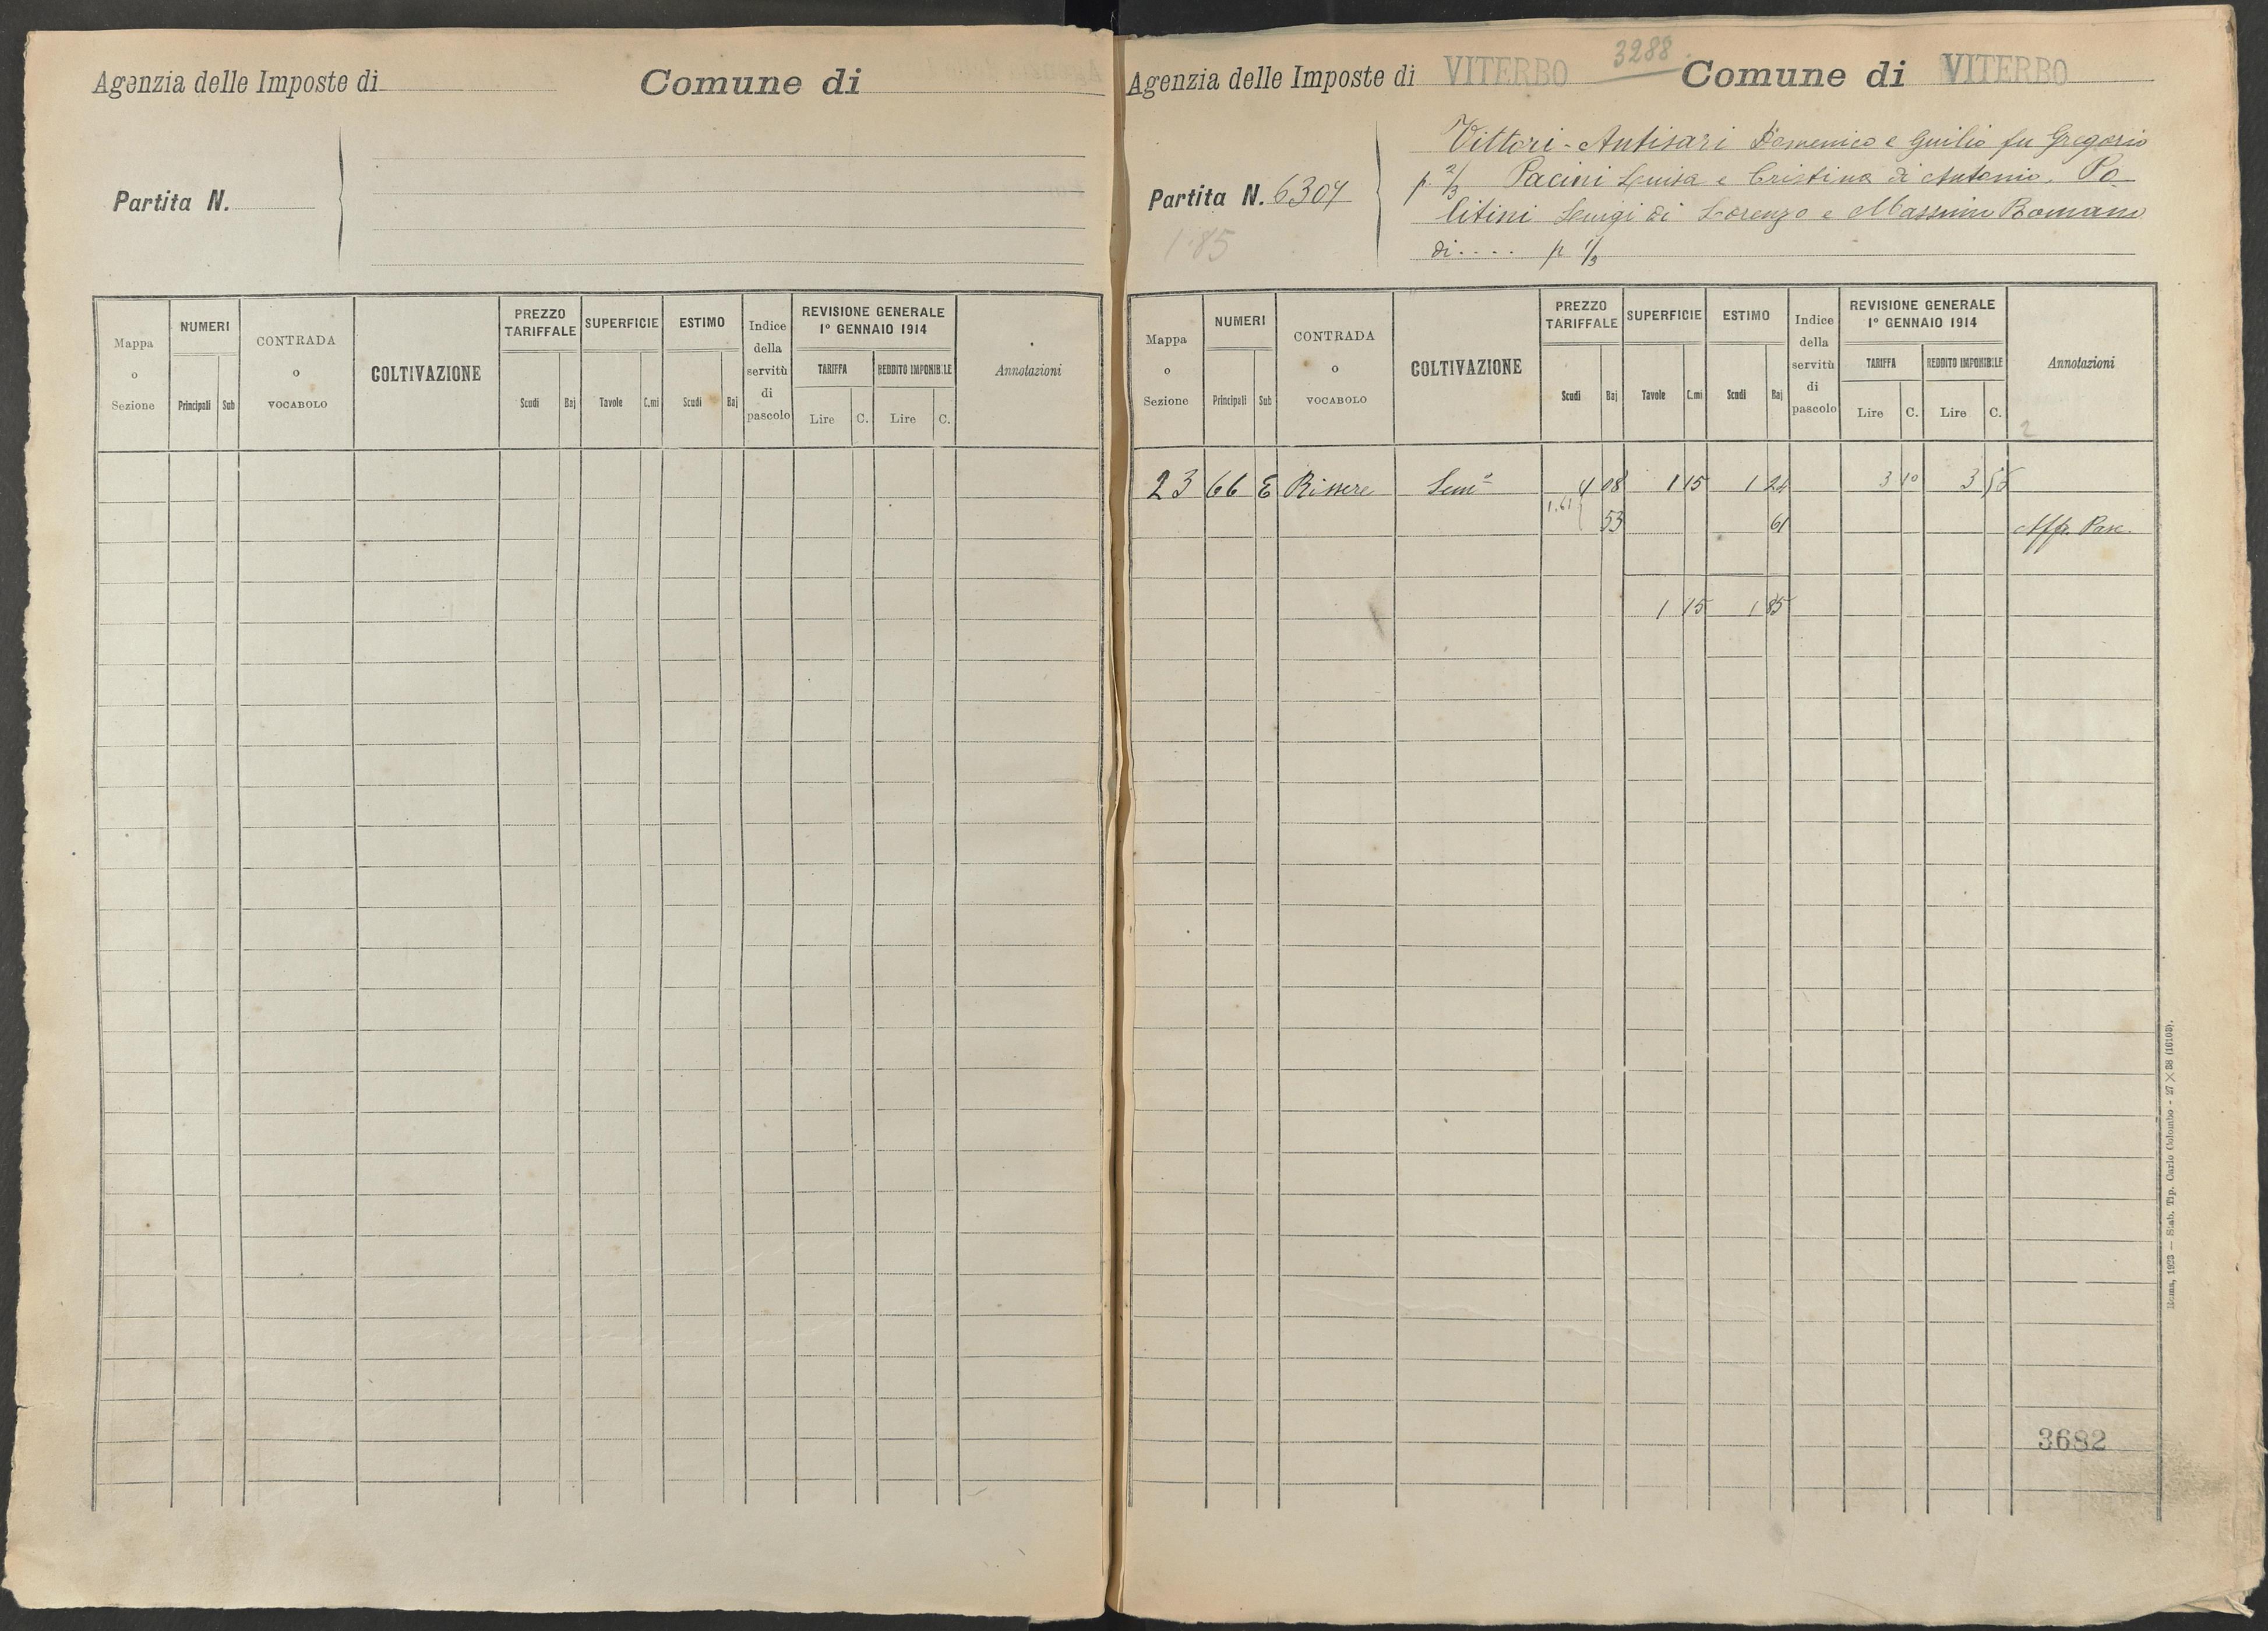 Agenzia delle Imposte di
Comune di
Partita N.
Mappa o Sezione
NUMERI
Principali Sub
CONTRADA o VOCABOLO
COLTIVAZIONE
PREZZO TARIFFALE
Scudi Baj
SUPERFICIE
Tavole C.mi
ESTIMO
Scudi Baj
Indice della servitù di pascolo
REVISIONE GENERALE
1° GENNAIO 1914
TARIFFA
Lire C.
REDDITO IMPONIBILE
Lire C.
Annotazioni
3288
Agenzia delle Imposte di VITERBO Comune di VITERBO
Partita N. 6307
1.85
Vittori-Antisari Domenico e Giulio fu Gregorio
p. 2/3 Pacini Luisa e Cristina di Antonio. Po
litini Luigi di Lorenzo e Massimo Romano
di.... p 1/3
Mappa o Sezione
NUMERI
Principali Sub
CONTRADA o VOCABOLO
COLTIVAZIONE
PREZZO TARIFFALE
Scudi Baj
SUPERFICIE
Tavole C.mi
ESTIMO
Scudi Baj
Indice della servitù di pascolo
REVISIONE GENERALE
1° GENNAIO 1914
TARIFFA
Lire C.
REDDITO IMPONIBILE
Lire C.
Annotazioni
2
23 66 E Rissere Sem° 4 08 1 15 1 24 3 10 3 56
1.61 53 61 Affr. Pasc.
1 15 1 85
3682
Roma, 1923 — Stab. Tip. Carlo Colombo - 27 X 38 (16103).